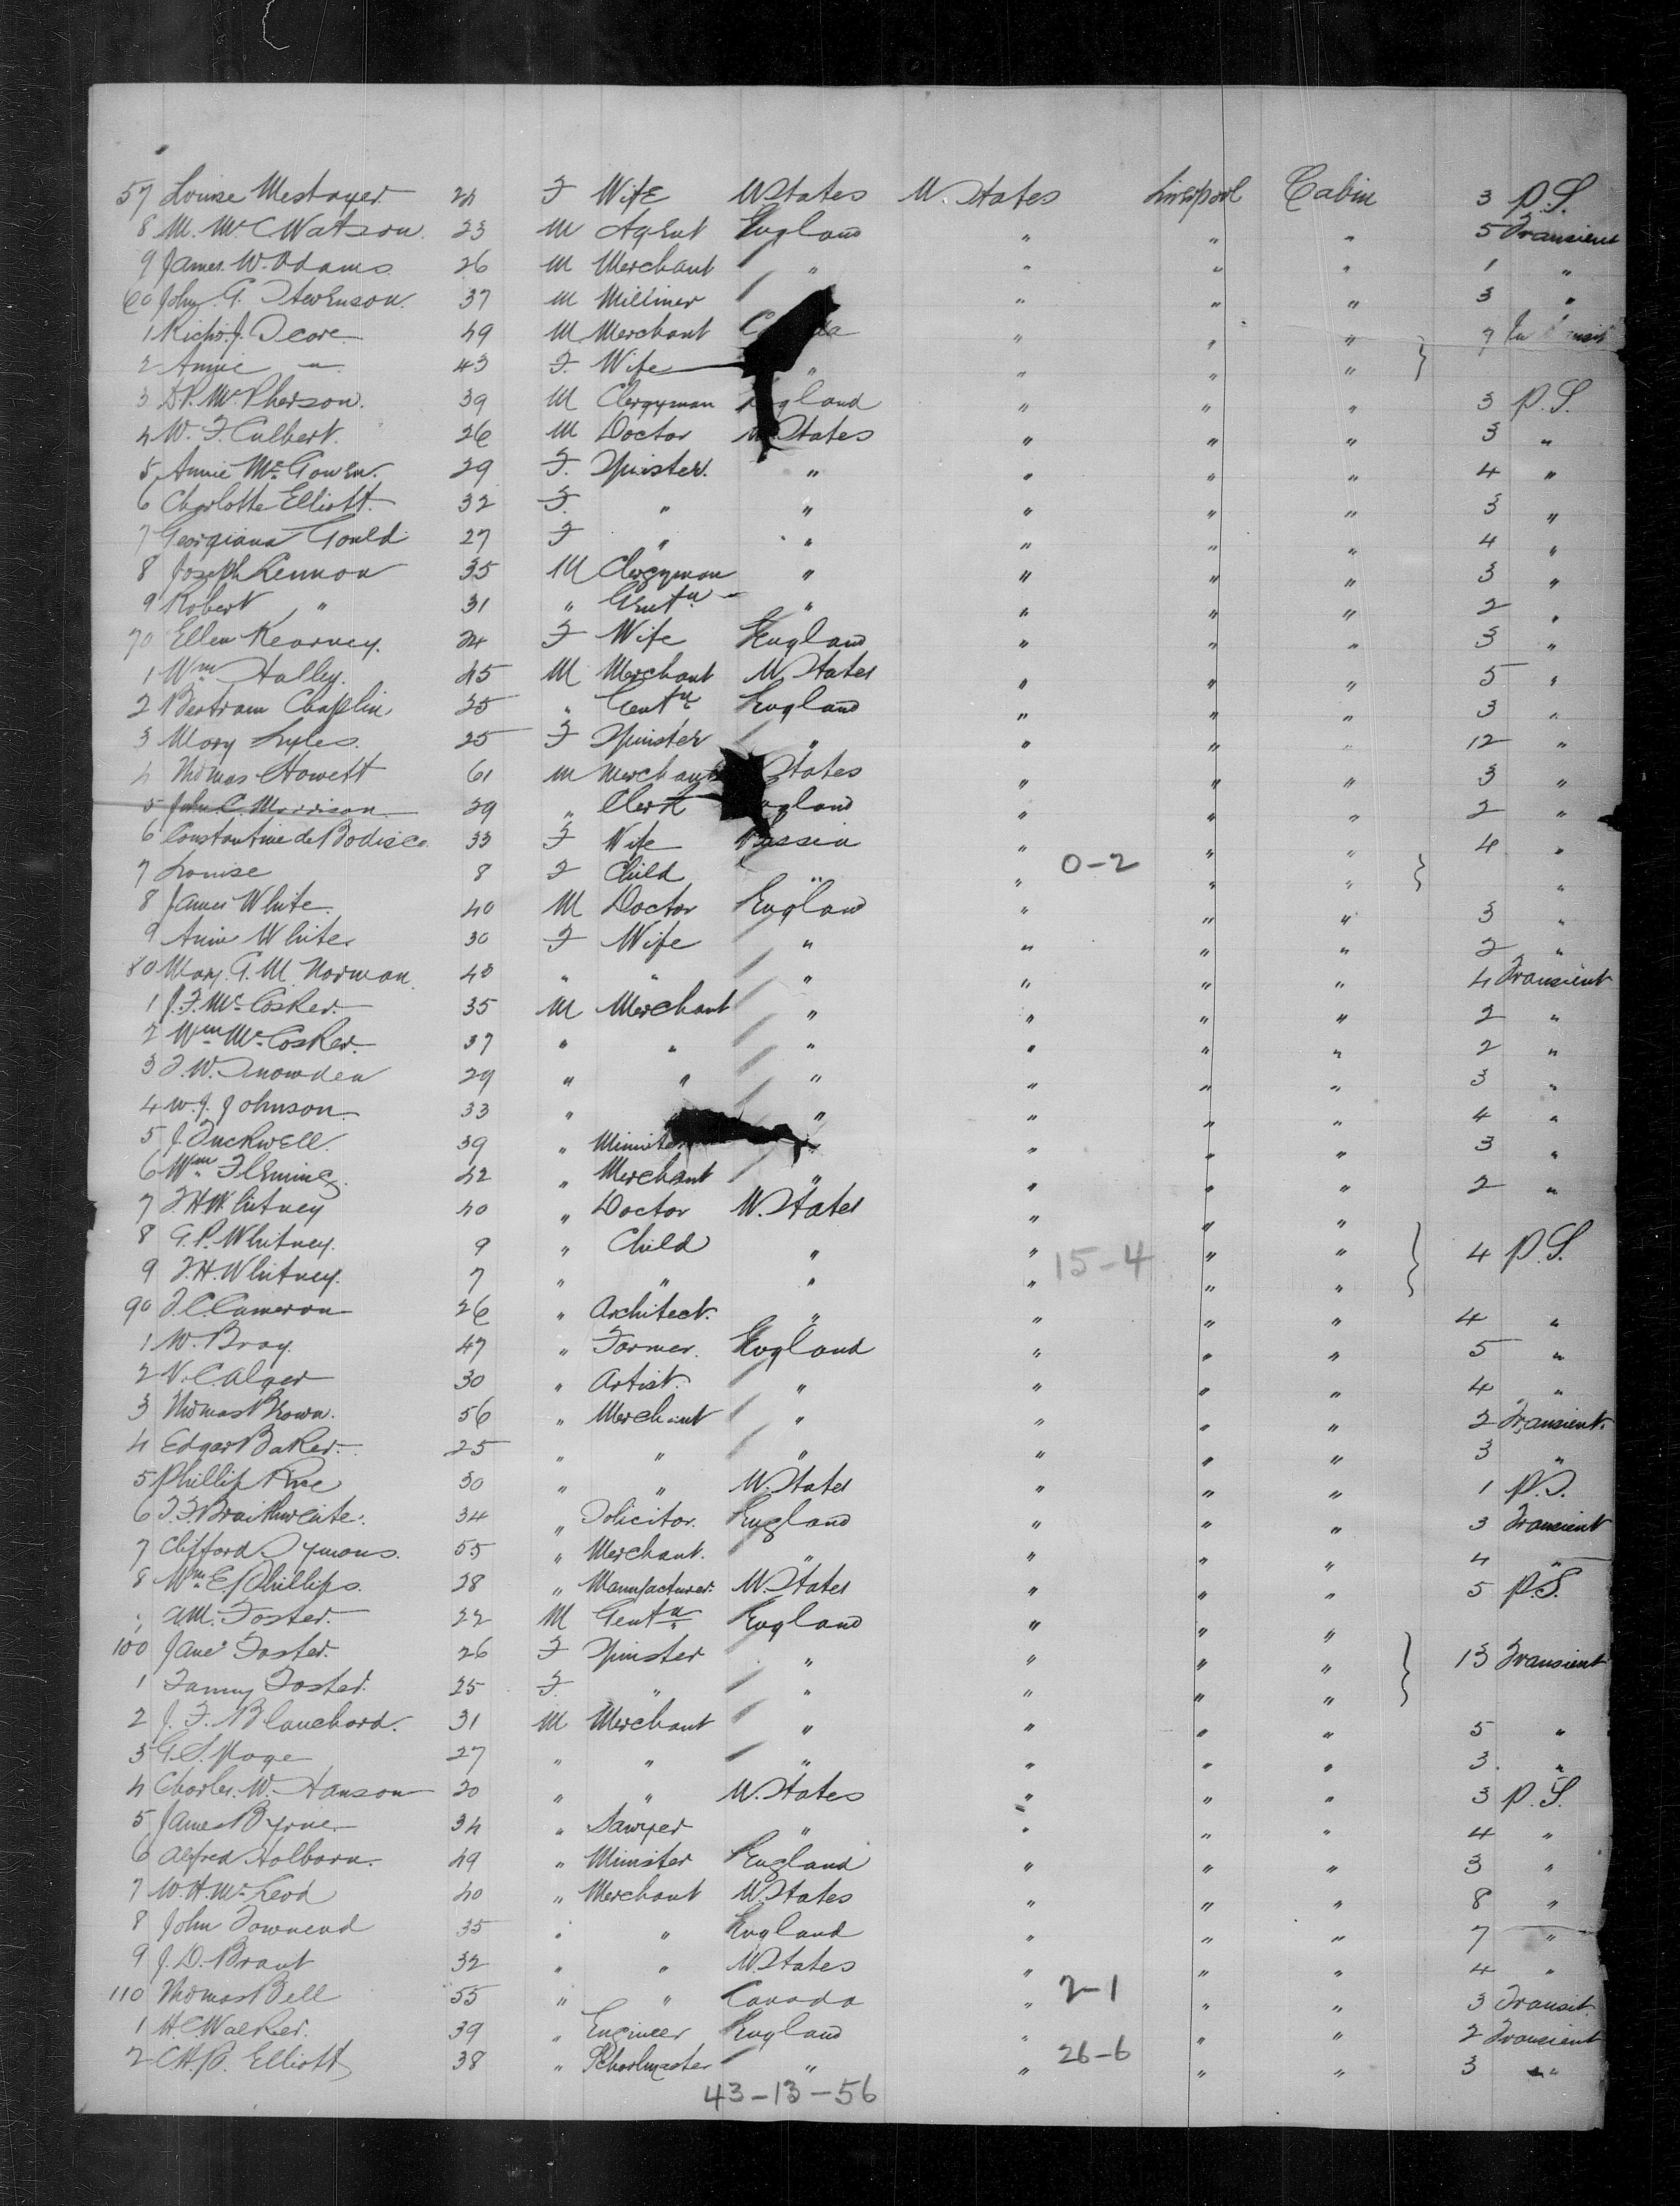 57 Louise Mestayer 24 F Wife U States U. States Liverpool Cabin 3 P.S.
8 M. Mc C Watson. 23 M Agent England " " " 5 Transient
9 James W. Adams 26 M Merchant " " " " 1 "
60 John G. Stevenson. 37 M Milliner " " " 3 "
1 Richd. J. 49 M Merchant " " " 7 In
2 Annie " 43 F. Wife " " " "
3 D.P. McPherson. 39 M Clergyman England " " " 3 P.S.
4 W. F. Culbert. 26 M Doctor U States " " " 3 "
5 Annie McGowen. 29 F. Spinster. " " " " 4 "
6 Charlotte Elliott. 32 F. " " " " " 3 "
7 Georgiana Gould 27 F " " " " " 4 "
8 Joseph Lennon 35 M Clergyman " " " " 3 "
9 Robert " 31 " Gentn " " " " 2 "
70 Ellen Kearney. 24 F Wife England " " " 3 "
1 Wm Halley. 45 M Merchant U States " " " 5 "
2 Bertram Chaplin 25 " Gentn England " " " 3 "
3 Mary Lyles. 25 F Spinster " " " " 12 "
4 Thomas Howett 61 M Merchant States " " " 3 "
5 John C. Morrison 29 " Clerk England " " " 2 "
6 Constantine de Bodisco 33 F Wife Russia " " " 4 "
7 Louise 8 F Child " " 0-2 " " "
8 James White. 40 M Doctor England " " " 3 "
9 Annie White 30 F Wife " " " " 2 "
80 Mary. G. M. Norman. 48 " " " " " " 4 Transient
1 J. F. McCosker. 35 M Merchant " " " " 2 "
2 Wm McCosker. 37 " " " " " " 2 "
3 F. W. Snowden 29 " " " " " " 3 "
4 W. J. Johnson. 33 " " " " " 4 "
5 J. Tuckwell. 39 " Minister " " " 3 "
6 Wm Fleming. 42 " Merchant " " " " 2 "
7 F H Whitney 40 " Doctor U. States " " "
8 G. P. Whitney. 9 " Child " " " " 4 P.S.
9 F. H. Whitney. 7 " " " " 15-4 " "
90 F. C. Cameron 26 " Architect. " " " " 4 "
1 W. Bray. 47 " Farmer. England " " " 5 "
2 V. C. Alger 30 " Artist. " " " " 4 "
3 Thomas Brown. 56 " Merchant " " " " 2 Transient.
4 Edgar Baker. 25 " " " " " " 3 "
5 Phillip Rice 30 " " U. States " " " 1 P.S.
6 F. F. Braithwaite. 34 " Solicitor. England " " " 3 Transient
7 Clifford Symons. 55 " Merchant. " " " " 4 "
8 Wm E. Phillips. 28 " Manufacturer. U. States " " " 5 P.S.
A.M. Foster. 22 M Gentn England " " "
100 Jane Foster. 26 F Spinster " " " " 13 Transient
1 Fanny Foster. 25 F. " " " " "
2 J. F. Blanchard. 31 M Merchant " " " " 5 "
3 G. S. Page 27 " " " " " " 3 "
4 Charles. W. Hanson 20 " " U. States " " " 3 P.S.
5 James Byrne. 34 " Sawyer " " " " 4 "
6 Alfred Holborn. 49 " Minister England " " " 3 "
7 W. H. McLeod 40 " Merchant U. States " " " 8 "
8 John Townend 35 " " England " " " 7 "
9 J. D. Brant 32 " " U States " " " 4 "
110 Thomas Bell 55 " " Canada " 2-1 " " 3 Transit
1 H. C Walker. 39 " Engineer England " " " 2 Transient
2 C. H. P. Elliott 38 " Schoolmaster " " 26-6 " " 3 "
43-13-56